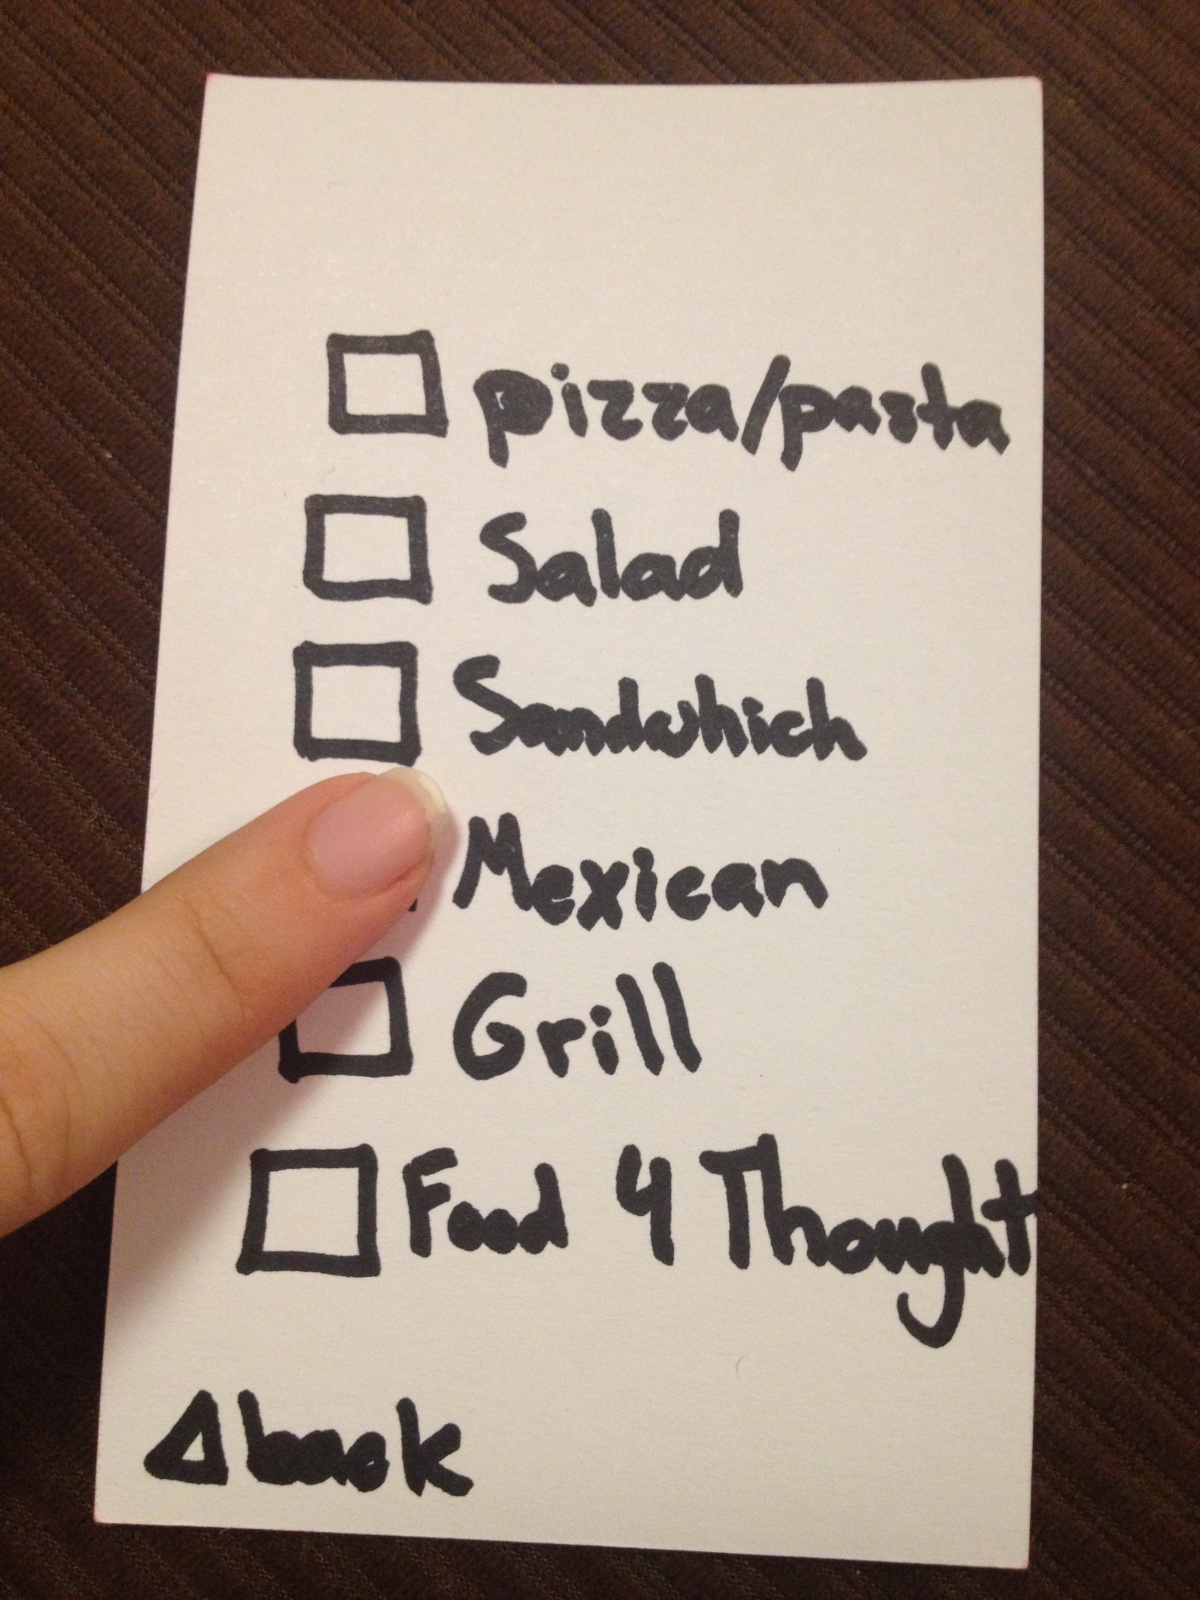 pizza/pasta
Salad
Sandwhich
Mexican
Grill
Food 4 Thought
back